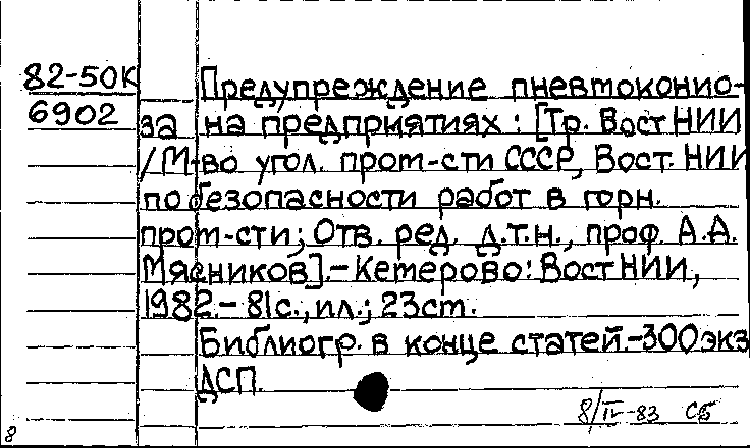 82-50К
6902
Предупреждение пневмокониo-
за на предприятиях: [Тр. ВостНИИ
/М-во угол. пром-сти СССР, Вост. НИИ
по безопасности работ в горн.
пром-сти; Отв. ред. д.т.н., проф. А.А.
Мясников].- Кемерово: ВостНИИ,
1982.- 81с., ил.; 23см.
Библиогр. в конце статей.-300экз
ДСП.
8/IV-83 СБ
8